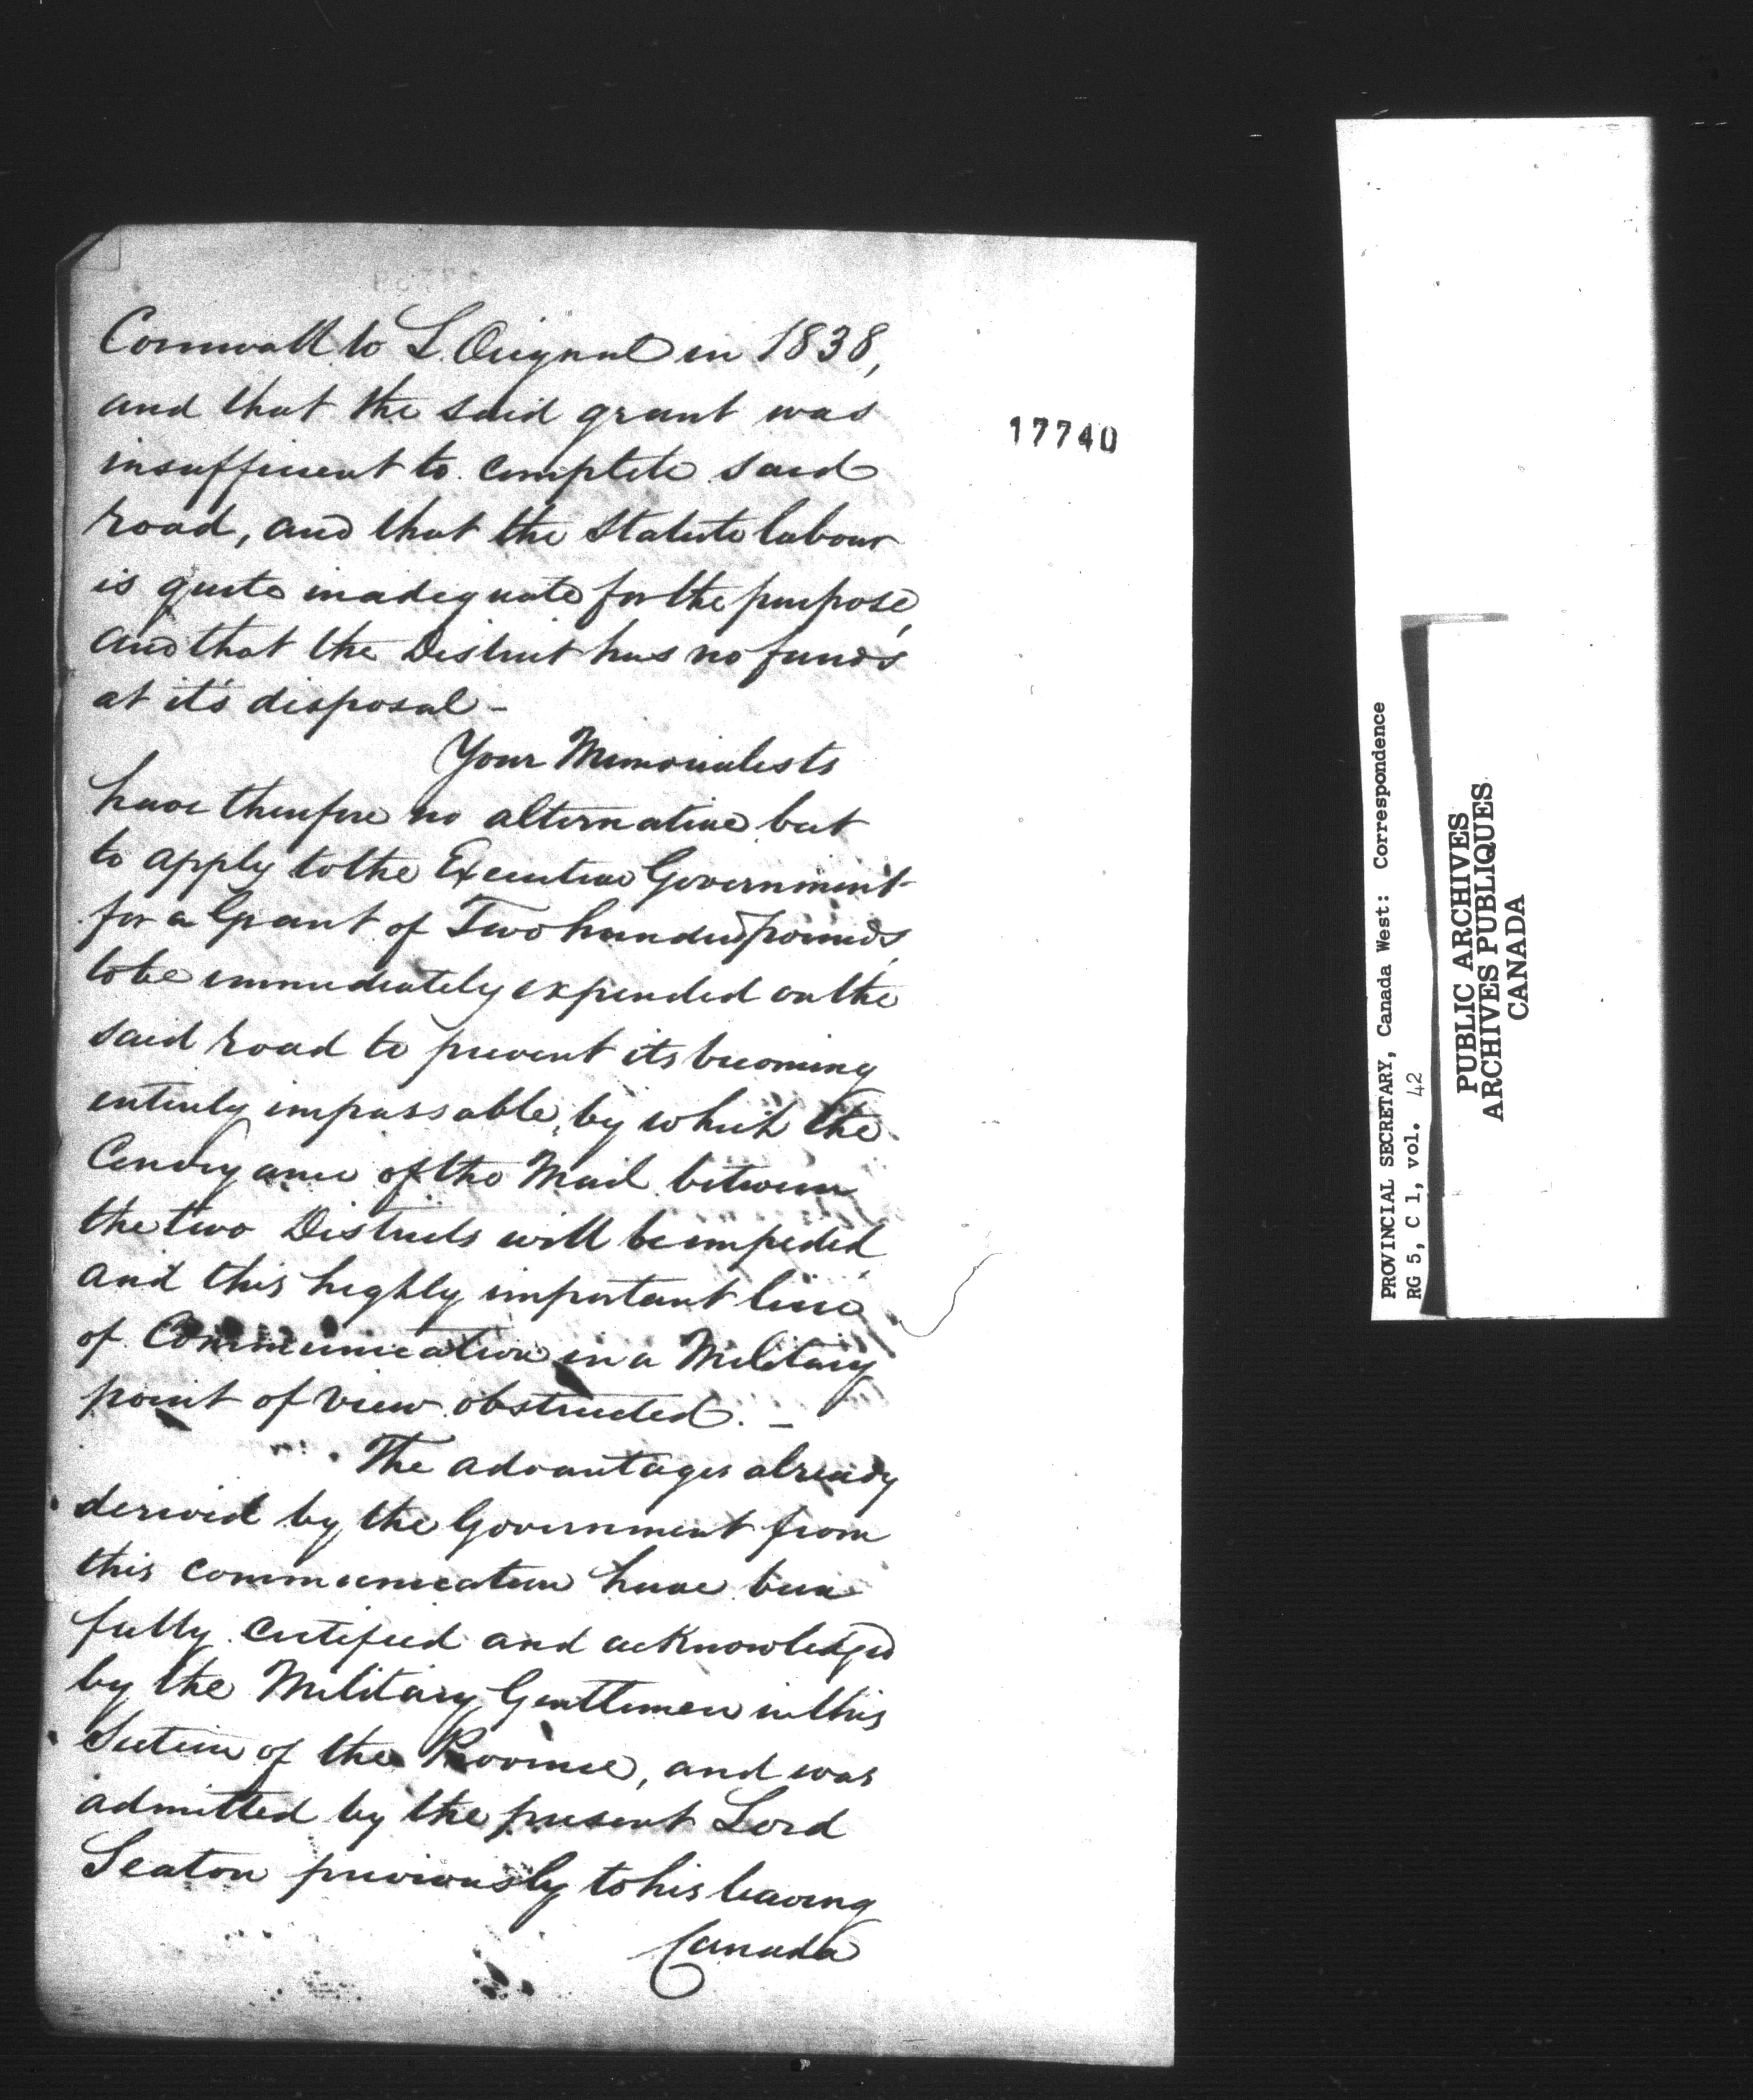 Cornwall to L'Orignal in 1838,
and that the said grant was
insufficient to complete said
road, and that the Statute labour
is quite inadequate for the purpose,
and that the District has no funds
at it's disposal -
Your Memorialists
have therefore no alternative but
to apply to the Executive Government
for a Grant of Two hundred pounds,
to be immediately expended on the
said road to prevent its becoming
entirely impassable, by which the
Conveyance of the Mail between
the two Districts will be impeded,
and this highly important line
of Communication in a Military
point of view obstructed. -
The advantages already
derived by the Government from
this communication have been
fully certified and acknowledged
by the Military Gentlemen in this
Section of the Province, and was
admitted by the present Lord
Seaton previously to his leaving
Canada
17740
PROVINCIAL SECRETARY, Canada West: Correspondence
RG 5, C 1, vol. 42
PUBLIC ARCHIVES
ARCHIVES PUBLIQUES
CANADA